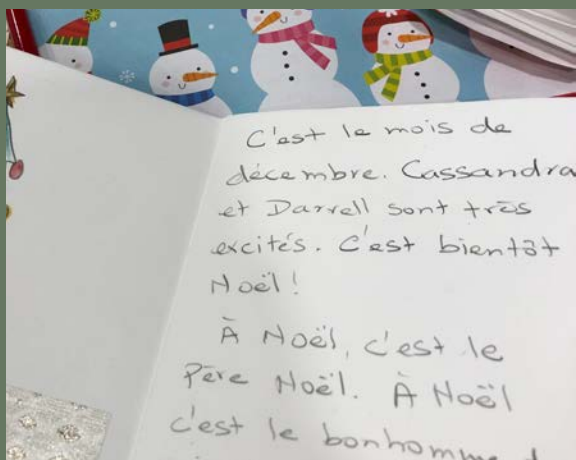 C'est le mois de
décembre. Cassandra
et Darrell sont très
excités. C'est bientôt
Noël!
À Noël, c'est le
Père Noël. À Noël
c'est le bonhomme